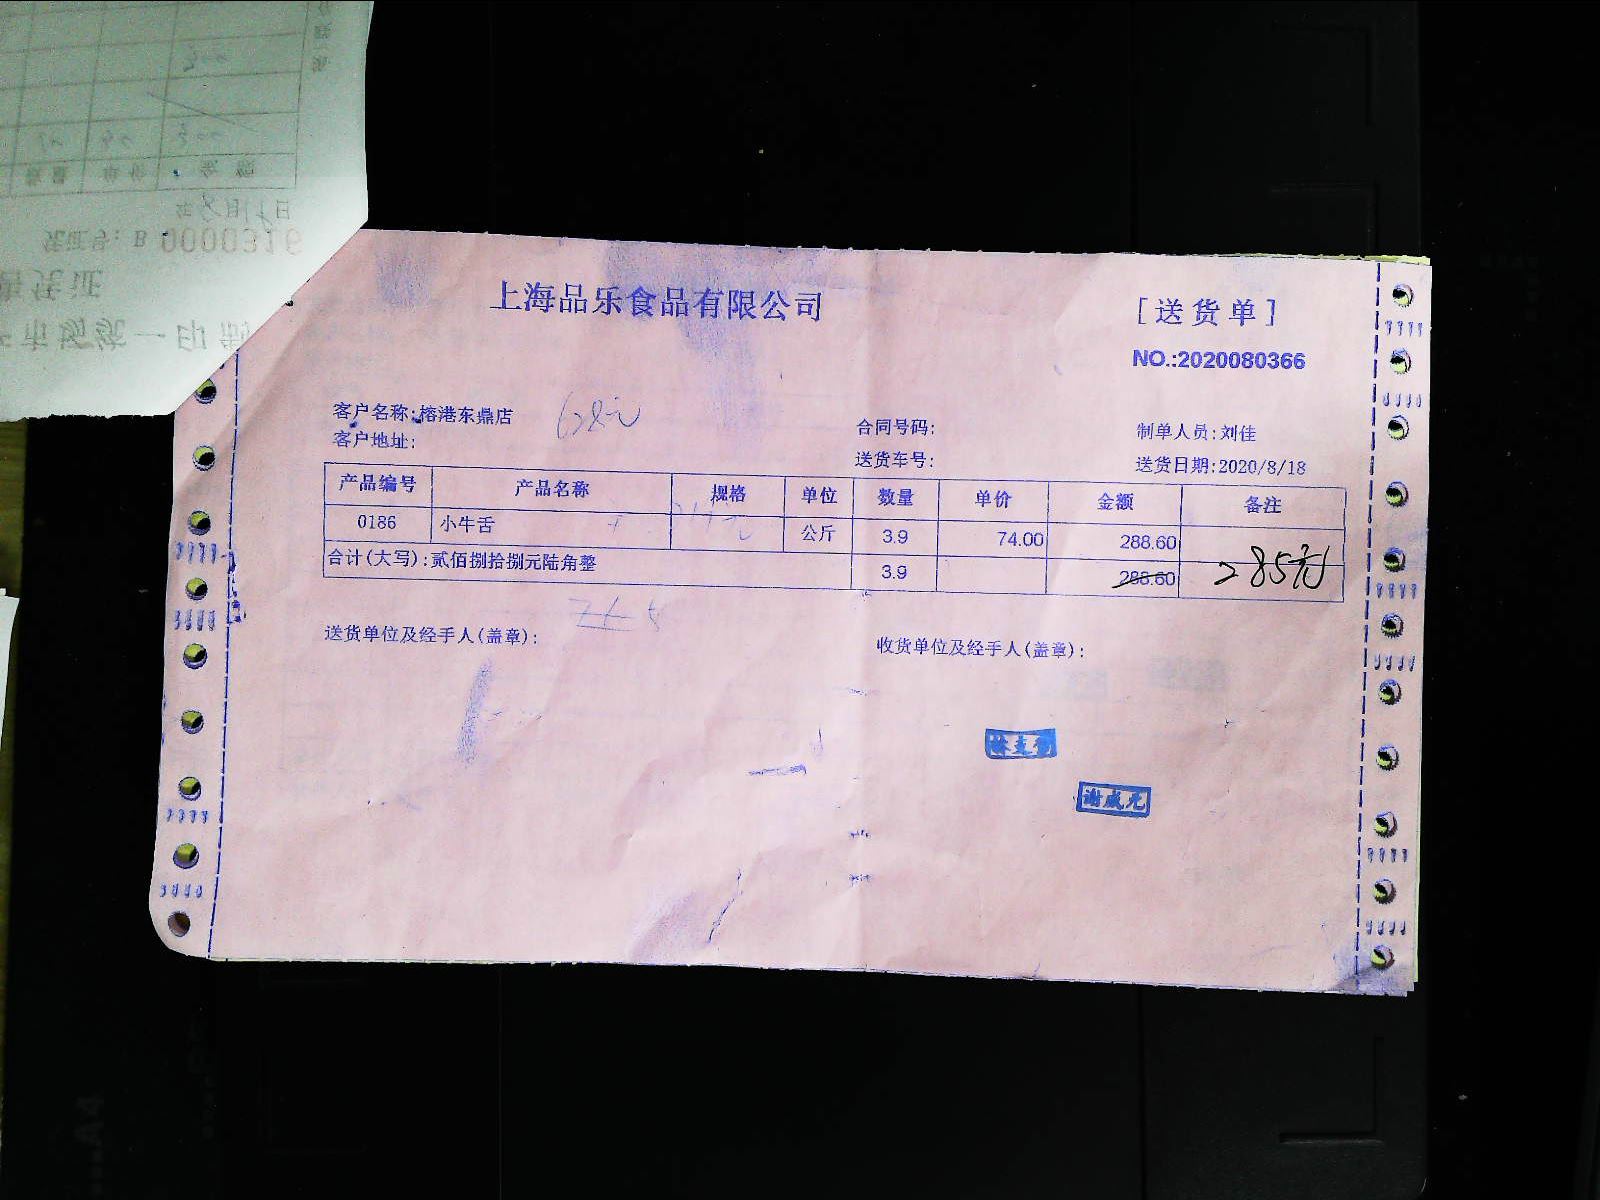 0000316
上海品乐食品有限公司
[送货单]
NO.:2020080366
客户名称:榕港东鼎店
合同号码:
制单人员:刘佳
客户地址:
送货车号:
送货日期:2020/8/18
产品编号 产品名称 规格 单位 数量 单价 金额 备注
0186 小牛舌 公斤 3.9 74.00 288.60
合计(大写):贰佰捌拾捌元陆角整 3.9 288.60 285元
送货单位及经手人(盖章):
收货单位及经手人(盖章):